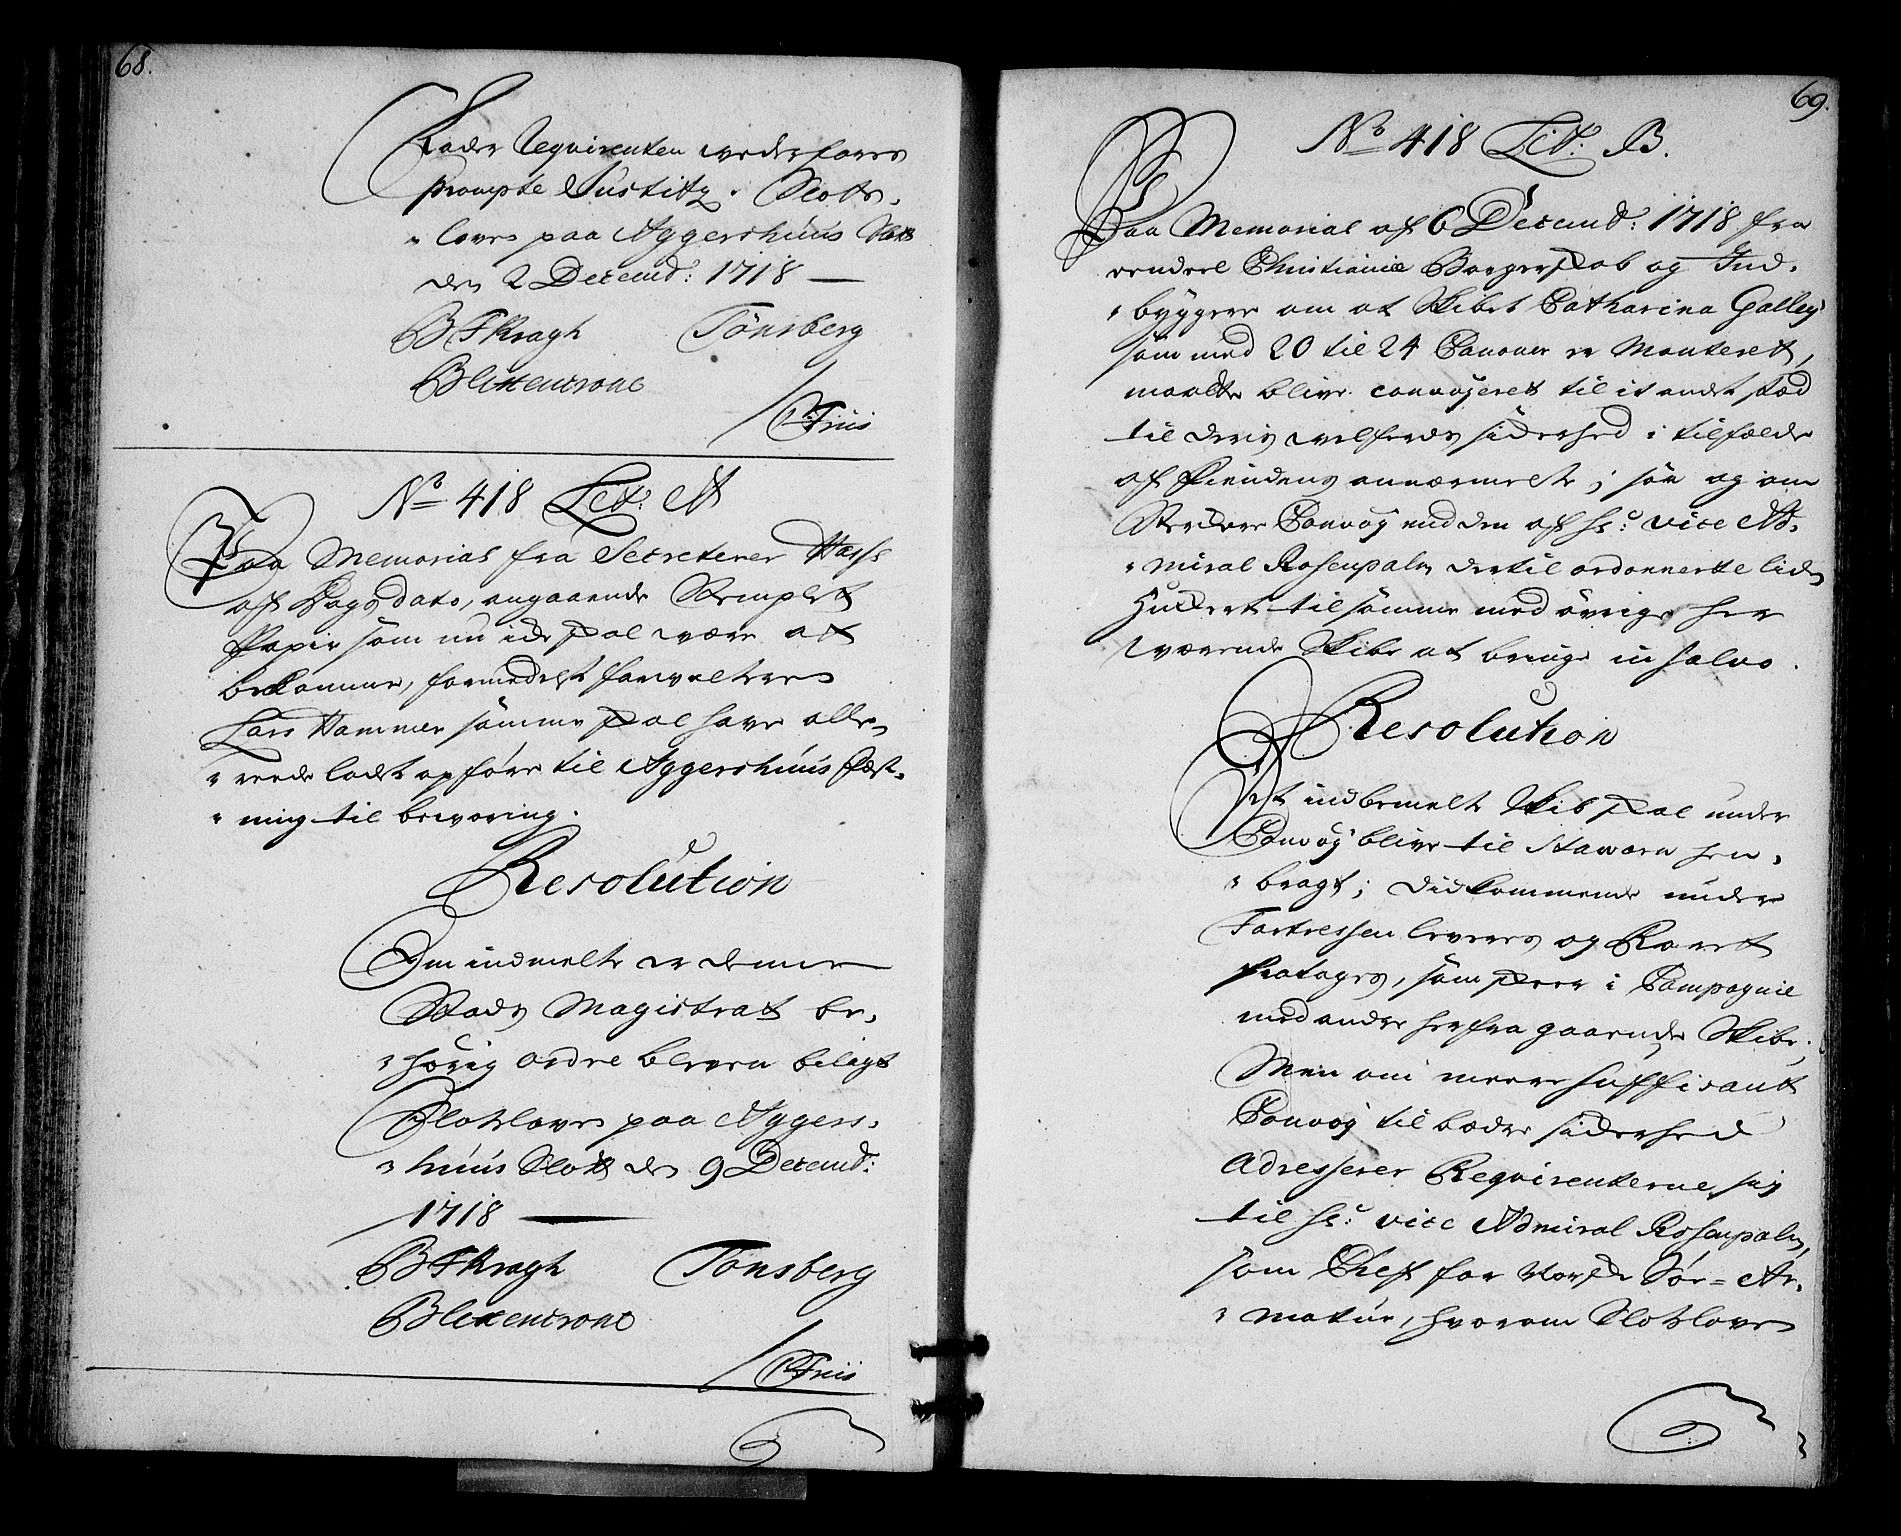 68.
lader Reqvirenten vederfares
prompte Justitz. Slots-
lowen paa Aggershuus Slott
den 2 Decembr: 1718 —
BFKragh Tönsberg
Blixencrone
/ Friis
No 418 Lit: A
Paa Memorial fra Secreterer Hass
af Dags dato, angaaende Stemplet
Papir som nu icke skal være at
bekomme, formedelst forvalteren
Lars Hammer samme skal have alle-
reede ladet opföre til Aggershuus Fæst-
ning til bevaring.
Resolution
Om indmelte er denne
Stads Magistrat be-
hörig ordre bleven bilagt
Slotslowen paa Aggers-
huus Slott den 9 Decembr:
1718 —
BFKragh Tönsberg
Blixencrone
/ Friis
69.
No 418 Lit: B.
Paa Memorial af 6 Decembr: 1718 fra
eendeel Christianiæ Borgerskab og Ind-
byggere om at Skibet Catharina Galley
som med 20 til 24 Canoner er Monteret,
maatte blive convojeret til it andet stæd
til deris velferds sickerhed i tilfælde
af Fiendens annærmelse; saa og om
Sterckere Convoy end den af Hr: vice Ad-
miral Rosenpalm dertil ordonnerte lide
Huckert til samme med övrige her
værende Skibe at bringe in salvo.
Resolution
At indbemelte Skib skal under
Convoy blive til Stawærn hen-
bragt; Didkommende under
Fortressen leveres og Roret
fratages, som skeer i Compagnie
med andre herfra gaaende Skibe.
Men om meere suffisant
Convoy til bædre sickerhed
Adresserer Reqvirenterne sig
til Hr: vice Admiral Rosenpalm,
som Chef for Norske Söe-Ar-
matur, hvorom Slotslowen